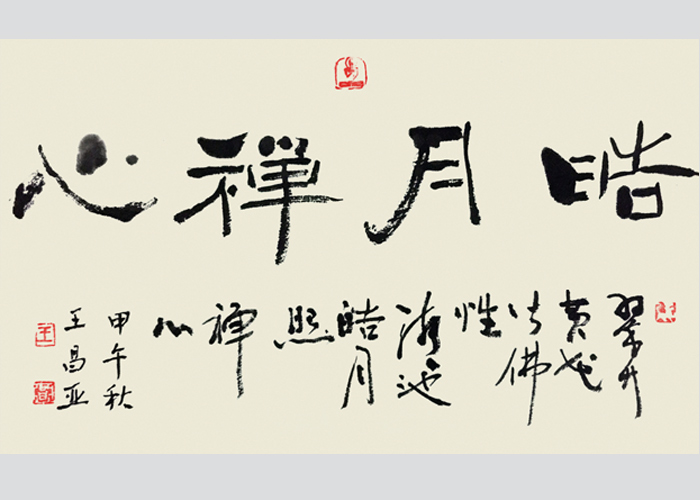 皓月禅心
翠竹
黄花
皆佛
性
清池
皓月
照
禅
心
甲午秋
王昌亚
王